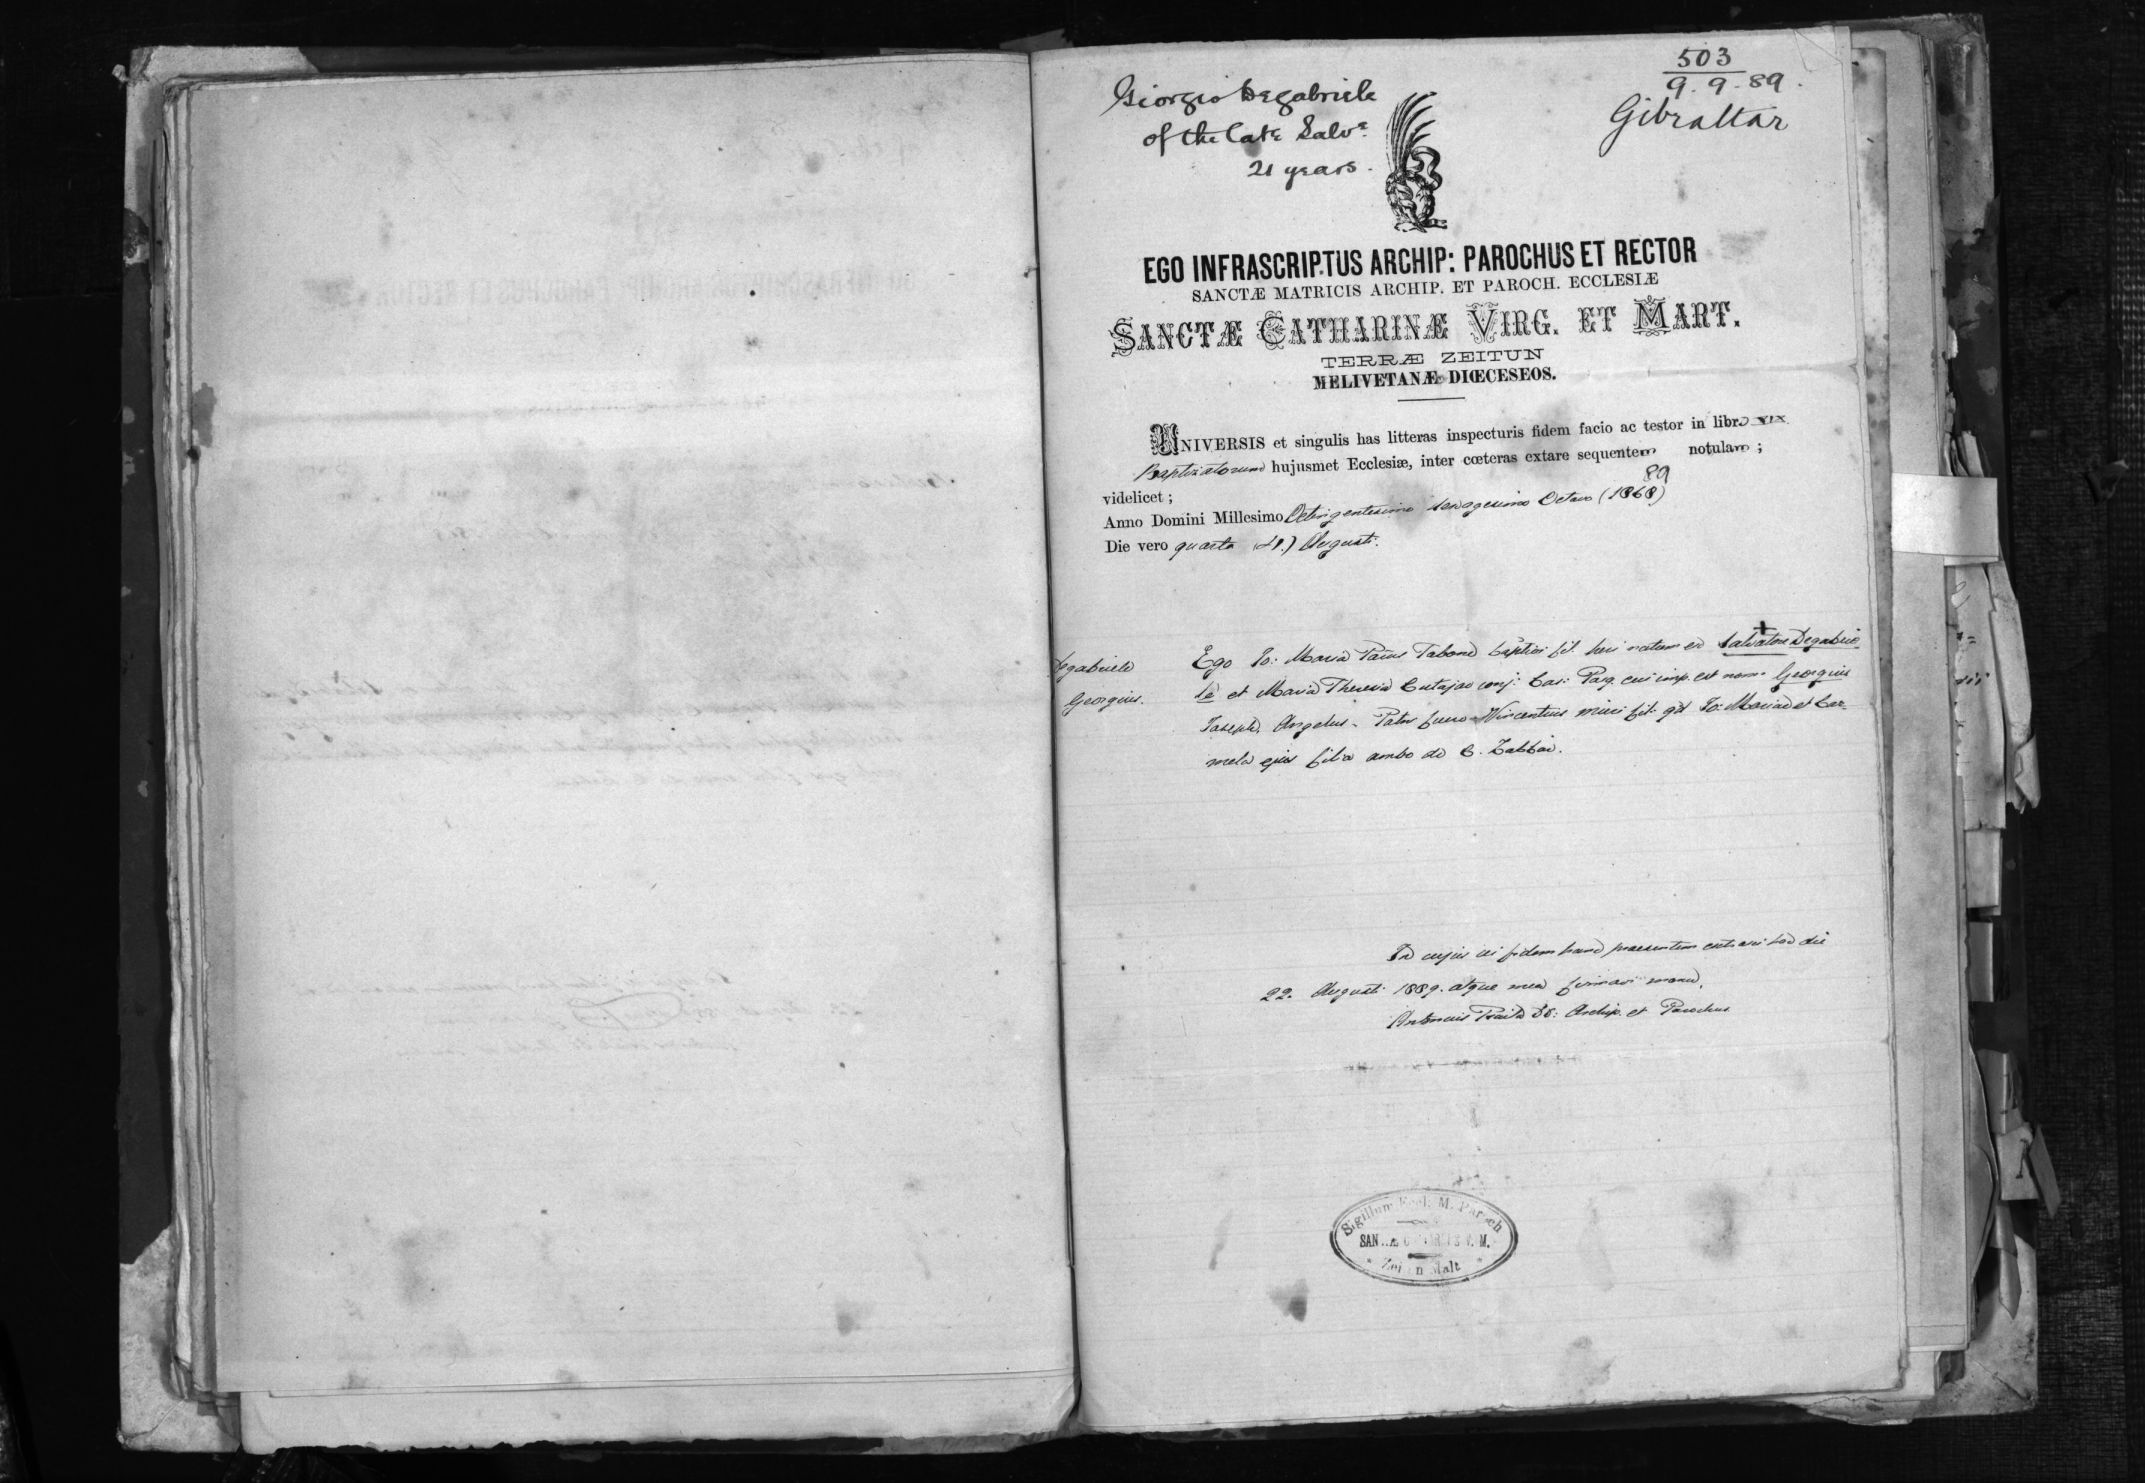 503
9.9.89.
Gibraltar
Giorgio Degabriele
of the late Salv.e
21 years.
EGO INFRASCRIPTUS ARCHIP: PAROCHUS ET RECTOR
SANCTÆ MATRICIS ARCHIP. ET PAROCH. ECCLESIÆ
SANCTÆ CATHARINÆ VIRG. ET MART.
TERRÆ ZEITUN
MELIVETANÆ DIŒCESEOS.
UNIVERSIS et singulis has litteras inspecturis fidem facio ac testor in libro XIX
Baptizatorum hujusmet Ecclesiæ, inter cœteras extare sequentem notulam ;
videlicet ;
89
Anno Domini Millesimo Octingentesimo sexagesimo Octavo (1868)
Die vero quarta (4.) Augusti.
Degabriele
Georgius.
Ego Jo: Maria Tabone baptizavi natum ex Salvatore Degabrie-
le et Maria Theresia Cutajar conj: cui imp. est nom. Georgius
Joseph, Angelus. Patr. fuere Vincentius fil. Jo: Maria et Car-
mela ejus filia ambo de C. Zabbar.
In cujus rei fidem hanc praesentem extraxi hac die
22. Augusti 1889. atque mea firmavi manu.
Archip. et Parochus
Sigillum Eccl. M. Paroch